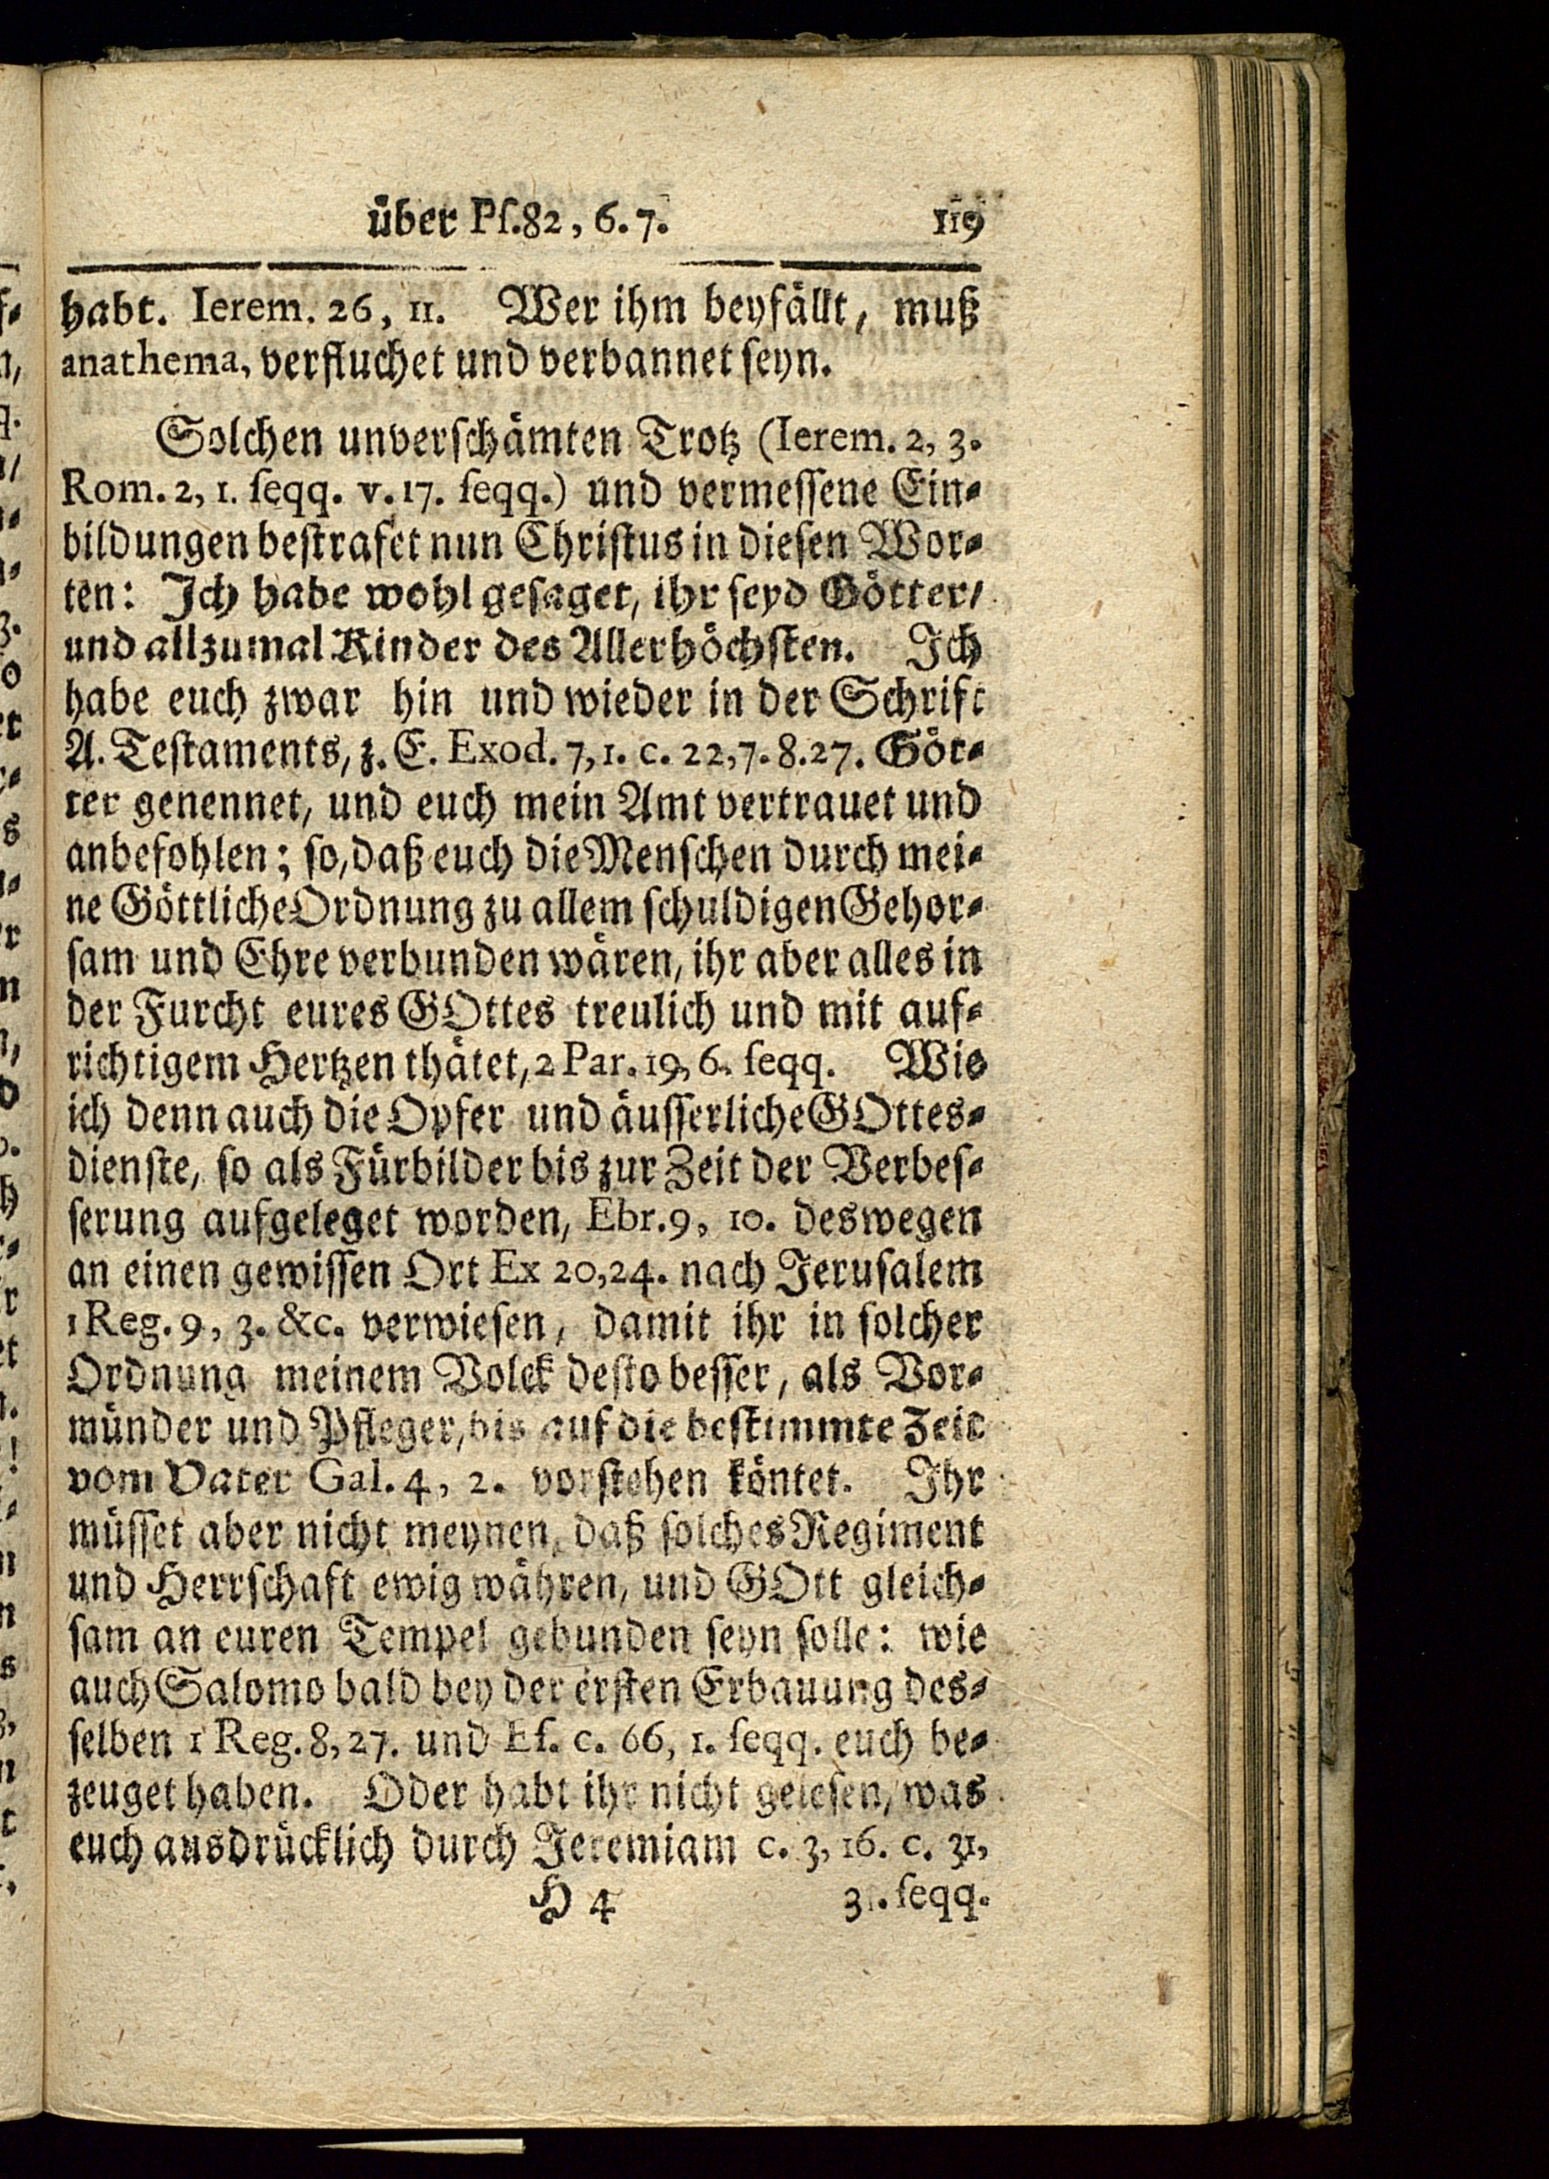 über Pſ. 82, 6. 7. 119
habt. Ierem. 26, 11. Wer ihm beyfällt, muß
anathema, verfluchet und verbannet ſeyn.
Solchen unverſchämten Trotz (Ierem. 2, 3.
Rom. 2, 1. ſeqq. v. 17. ſeqq.) und vermeſſene Ein-
bildungen beſtrafet nun Chriſtus in dieſen Wor-
ten: Ich habe wohl geſaget, ihr ſeyd Götter/
und allzumal Kinder des Allerhöchſten. Ich
habe euch zwar hin und wieder in der Schrift
A. Teſtaments, z. E. Exod. 7, 1. c. 22, 7. 8. 27. Göt-
ter genennet, und euch mein Amt vertrauet und
anbefohlen; ſo, daß euch die Menſchen durch mei-
ne Göttliche Ordnung zu allem ſchuldigen Gehor-
ſam und Ehre verbunden wären, ihr aber alles in
der Furcht eures GOttes treulich und mit auf-
richtigem Hertzen thätet, 2 Par. 19, 6. ſeqq. Wie
ich denn auch die Opfer und äuſſerliche GOttes-
dienſte, ſo als Fürbilder bis zur Zeit der Verbeſ-
ſerung aufgeleget worden, Ebr. 9, 10. deswegen
an einen gewiſſen Ort Ex 20, 24. nach Jeruſalem
1 Reg. 9, 3. &c. verwieſen, damit ihr in ſolcher
Ordnung meinem Volck deſto beſſer, als Vor-
münder und Pfleger, bis auf die beſtimmte Zeit
vom Vater Gal. 4, 2. vorſtehen köntet. Ihr
müſſet aber nicht meynen, daß ſolches Regiment
und Herrſchaft ewig währen, und GOtt gleich-
ſam an euren Tempel gebunden ſeyn ſolle: wie
auch Salomo bald bey der erſten Erbauung des-
ſelben 1 Reg. 8, 27. und Eſ. c. 66, 1. ſeqq. euch be-
zeuget haben. Oder habt ihr nicht geleſen, was
euch ausdrücklich durch Jeremiam c. 3, 16. c. 31,
H 4 31. ſeqq.